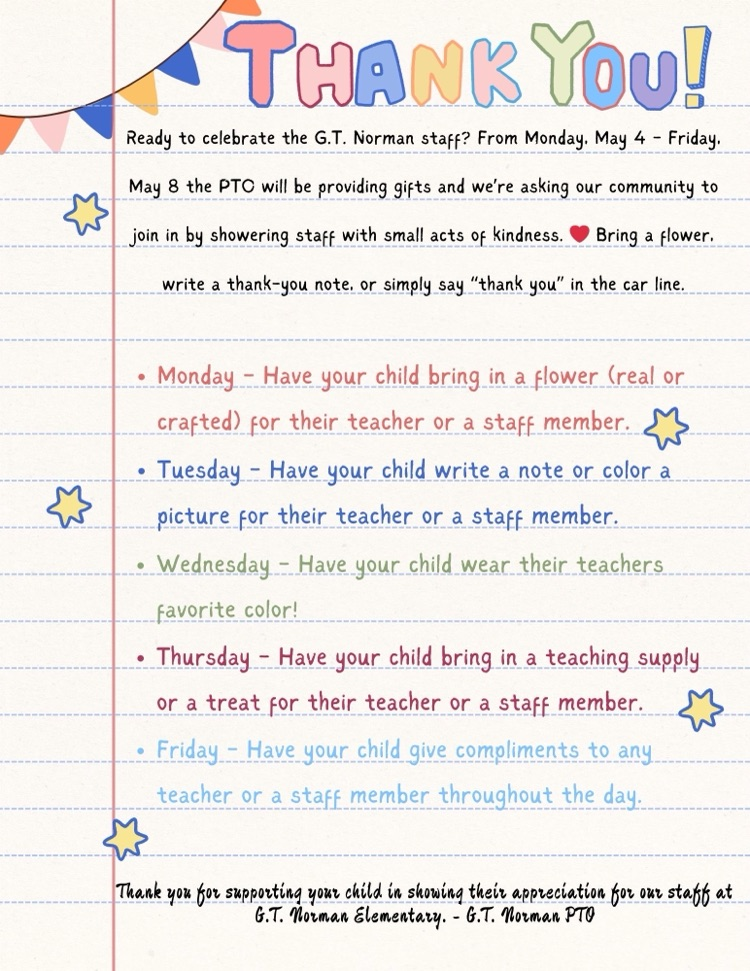 THANK YOU!
Ready to celebrate the G.T. Norman staff? From Monday, May 4 - Friday,
May 8 the PTO will be providing gifts and we're asking our community to
join in by showering staff with small acts of kindness. ❤️ Bring a flower,
write a thank-you note, or simply say “thank you” in the car line.
• Monday - Have your child bring in a flower (real or
crafted) for their teacher or a staff member.
• Tuesday - Have your child write a note or color a
picture for their teacher or a staff member.
• Wednesday - Have your child wear their teachers
favorite color!
• Thursday - Have your child bring in a teaching supply
or a treat for their teacher or a staff member.
• Friday - Have your child give compliments to any
teacher or a staff member throughout the day.
Thank you for supporting your child in showing their appreciation for our staff at
G.T. Norman Elementary. - G.T. Norman PTO